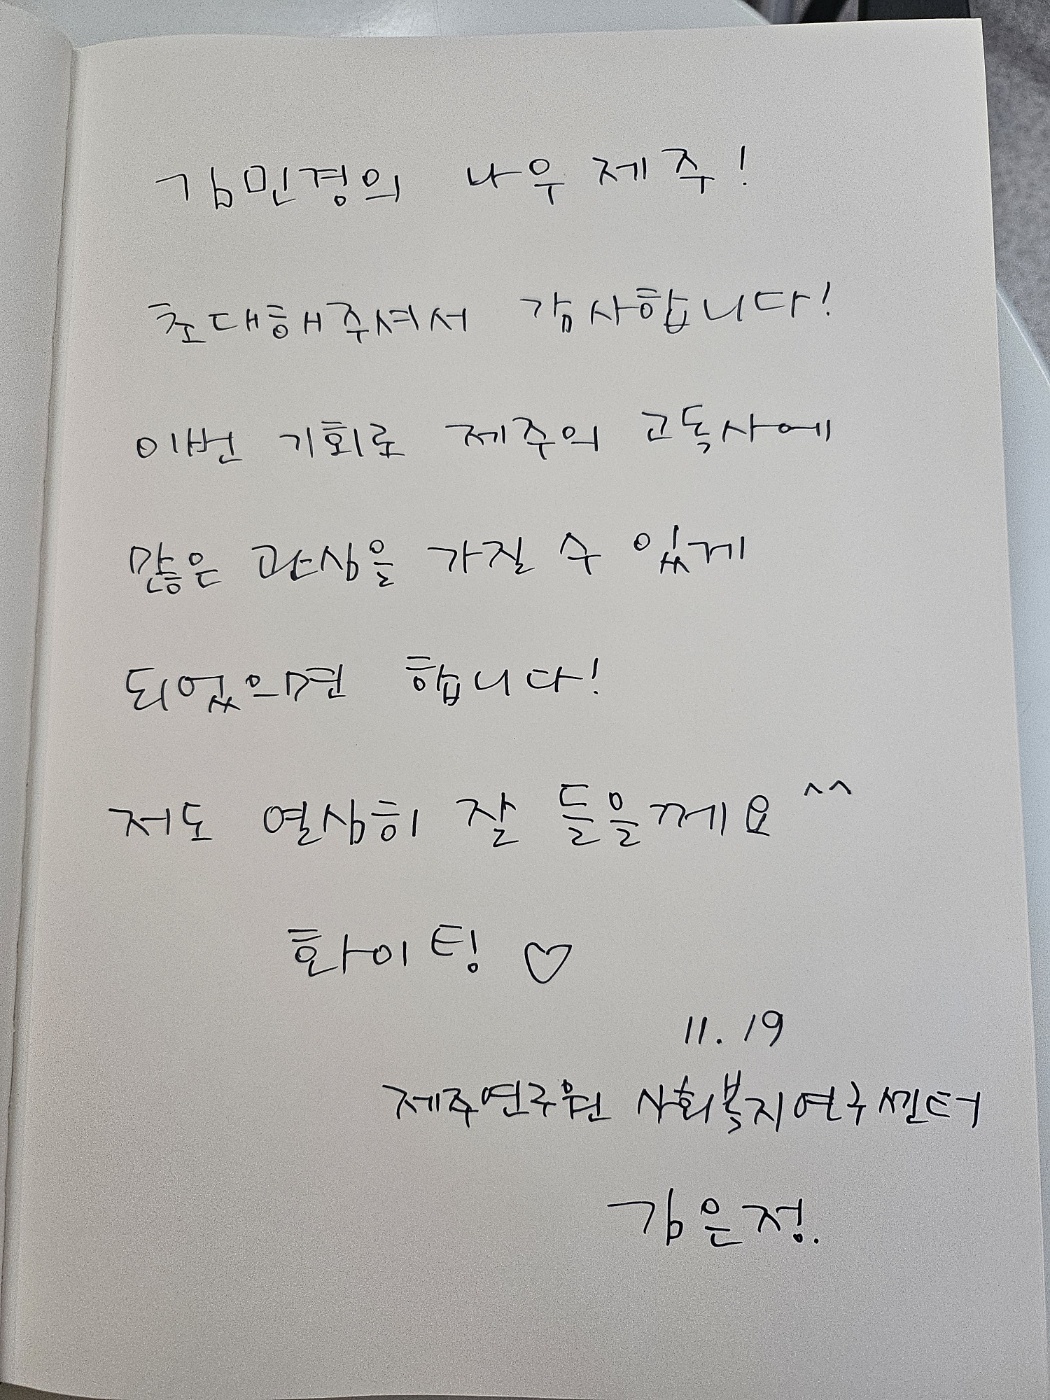 김민경의 나우 제주!
초대해주셔서 감사합니다!
이번 기회로 제주의 고독사에
많은 관심을 가질 수 있게
되었으면 합니다!
저도 열심히 잘 들을께요^^
화이팅 ♡
11. 19
제주연구원 사회복지연구센터
김은정.